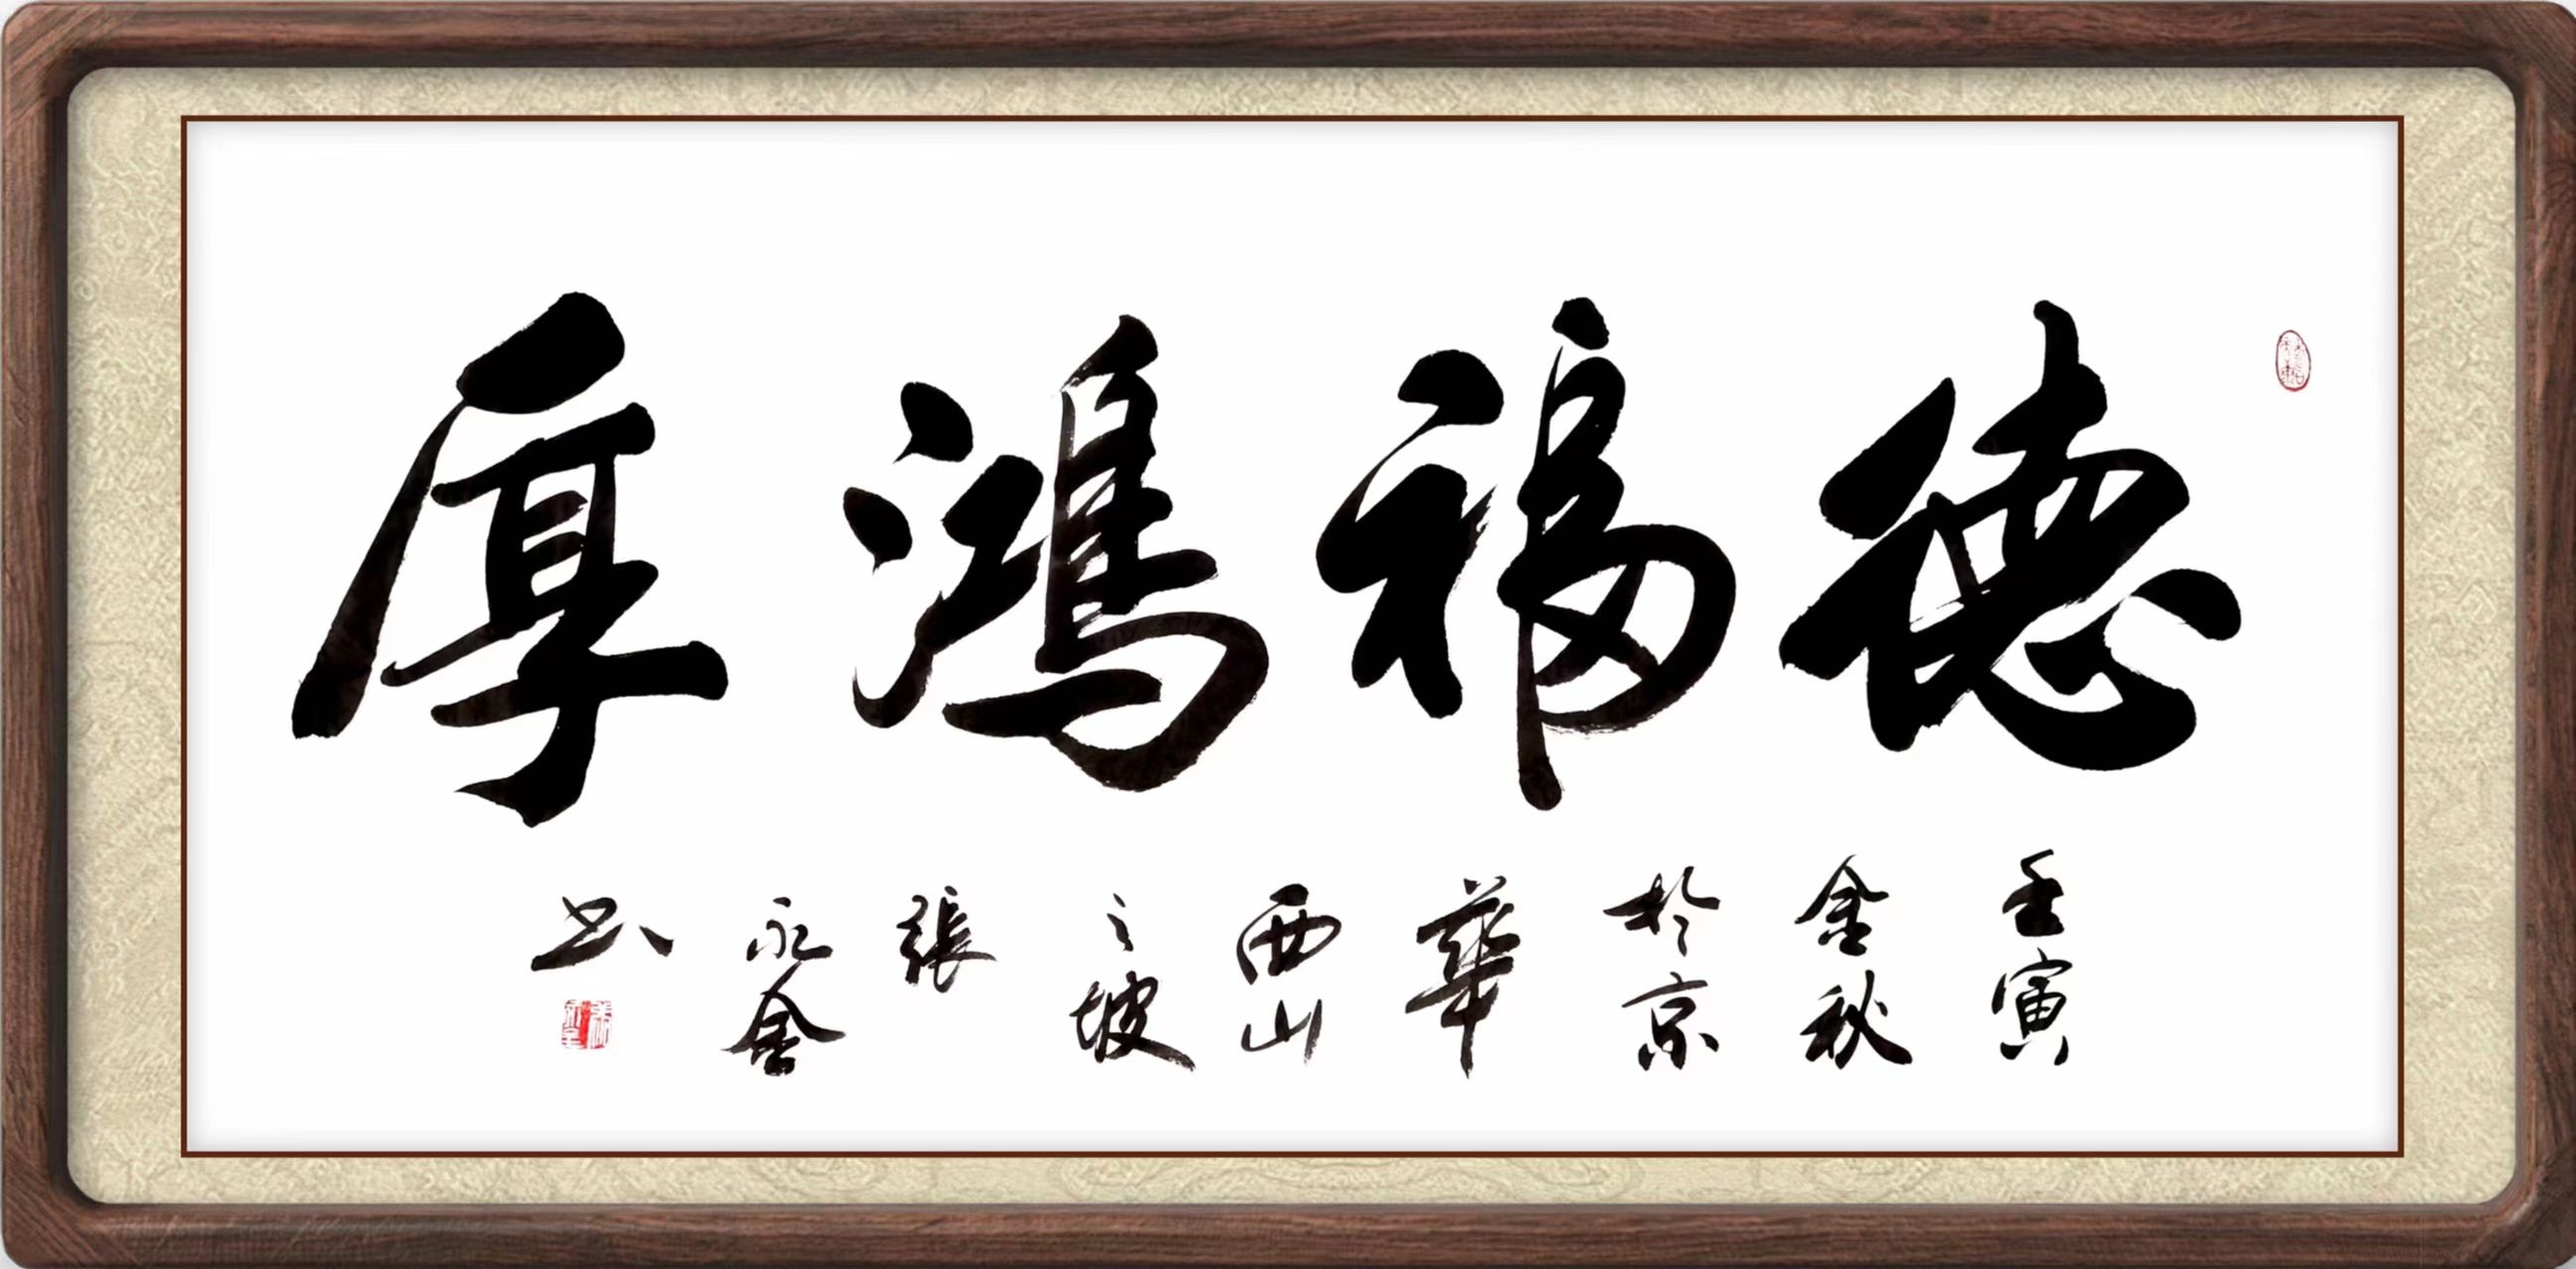 德福鴻厚
壬寅
金秋
於京
華
西山
之坡
張
永金
书